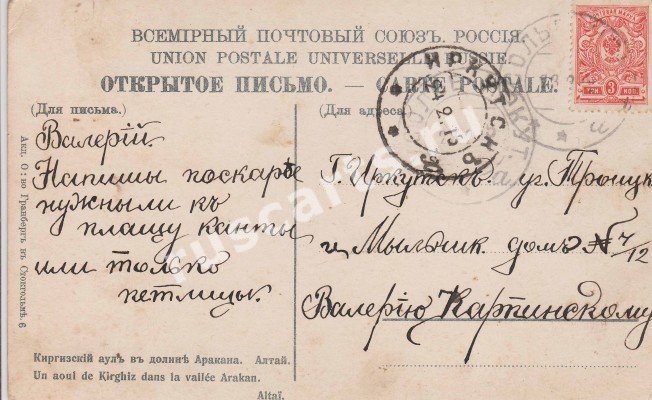 ВСЕМІРНЫЙ ПОЧТОВЫЙ СОЮЗЪ. РОССІЯ.
UNION POSTALE UNIVERSELLE. RUSSIE.
ОТКРЫТОЕ ПИСЬМО. — CARTE POSTALE.
3 КОП
ИРКУТСКЪ
(Для письма.)
(Для адреса.)
Валерій.
Напишы поскарѣе
нужны ли къ
плащу канты
или только
петлицы.
Г. Иркутскъ. уг. Троицк
и Мыльник. домъ № 7/12
Валерію Картинскому
Акц. О:во Гранбергъ въ Стокгольмѣ. 6
Киргизскій аулъ въ долинѣ Аракана. Алтай.
Un aoul de Kirghiz dans la vallée Arakan.
Altaï.
ruscards.ru